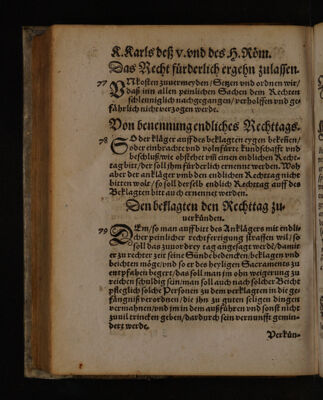 K. Karls deß v. vnd des H. Röm.
Das Recht fürderlich ergehn zulassen.
77 Vnkosten zuuermeyden / Setzen vnd ordnen wir /
daß inn allen peinlichen Sachen dem Rechten
schleuniglich nachgegangen / verholffen vnd ge-
fährlich nicht verzogen werde.
Von benennung endliches Rechttags.
78 So der kläger auff des beklagten eygen bekeñen /
oder einbrachte vnd volnfürte kundschafft vnd
beschluß / wie obstehet vm̃ einen endlichen Recht-
tag bitt / der soll ihm fürderlich ernennt werden. Woh
aber der ankläger vmb den endlichen Rechttag nicht
bitten wolt / so soll derselb endlich Rechttag auff des
Beklagten bitt auch ernennet werden.
Den beklagten den Rechttag zu-
verkünden.
79 Dem / so man auff bitt des Anklägers mit endli-
cher peinlicher rechtfertigung straffen wil / so
soll das zuuor drey tag angesagt werdẽ / damit
er zu rechter zeit seine Sünde bedencken / beklagen vnd
beichten möge / vnd so er des heyligen Sacraments zu
empfahen begert / das soll man jm ohn weigerung zu
reichen schuldig sein / man soll auch nach solcher Beicht
pfleglich solche Personen zu dem verklagten in die ge-
fängniß verordnen / die ihn zu guten seligen dingen
vermahnen / vnd jm in dem außführen vnd sonst nicht
zuuil trincken geben / dardurch sein vernunfft gemin-
dert werde.
Verkün-